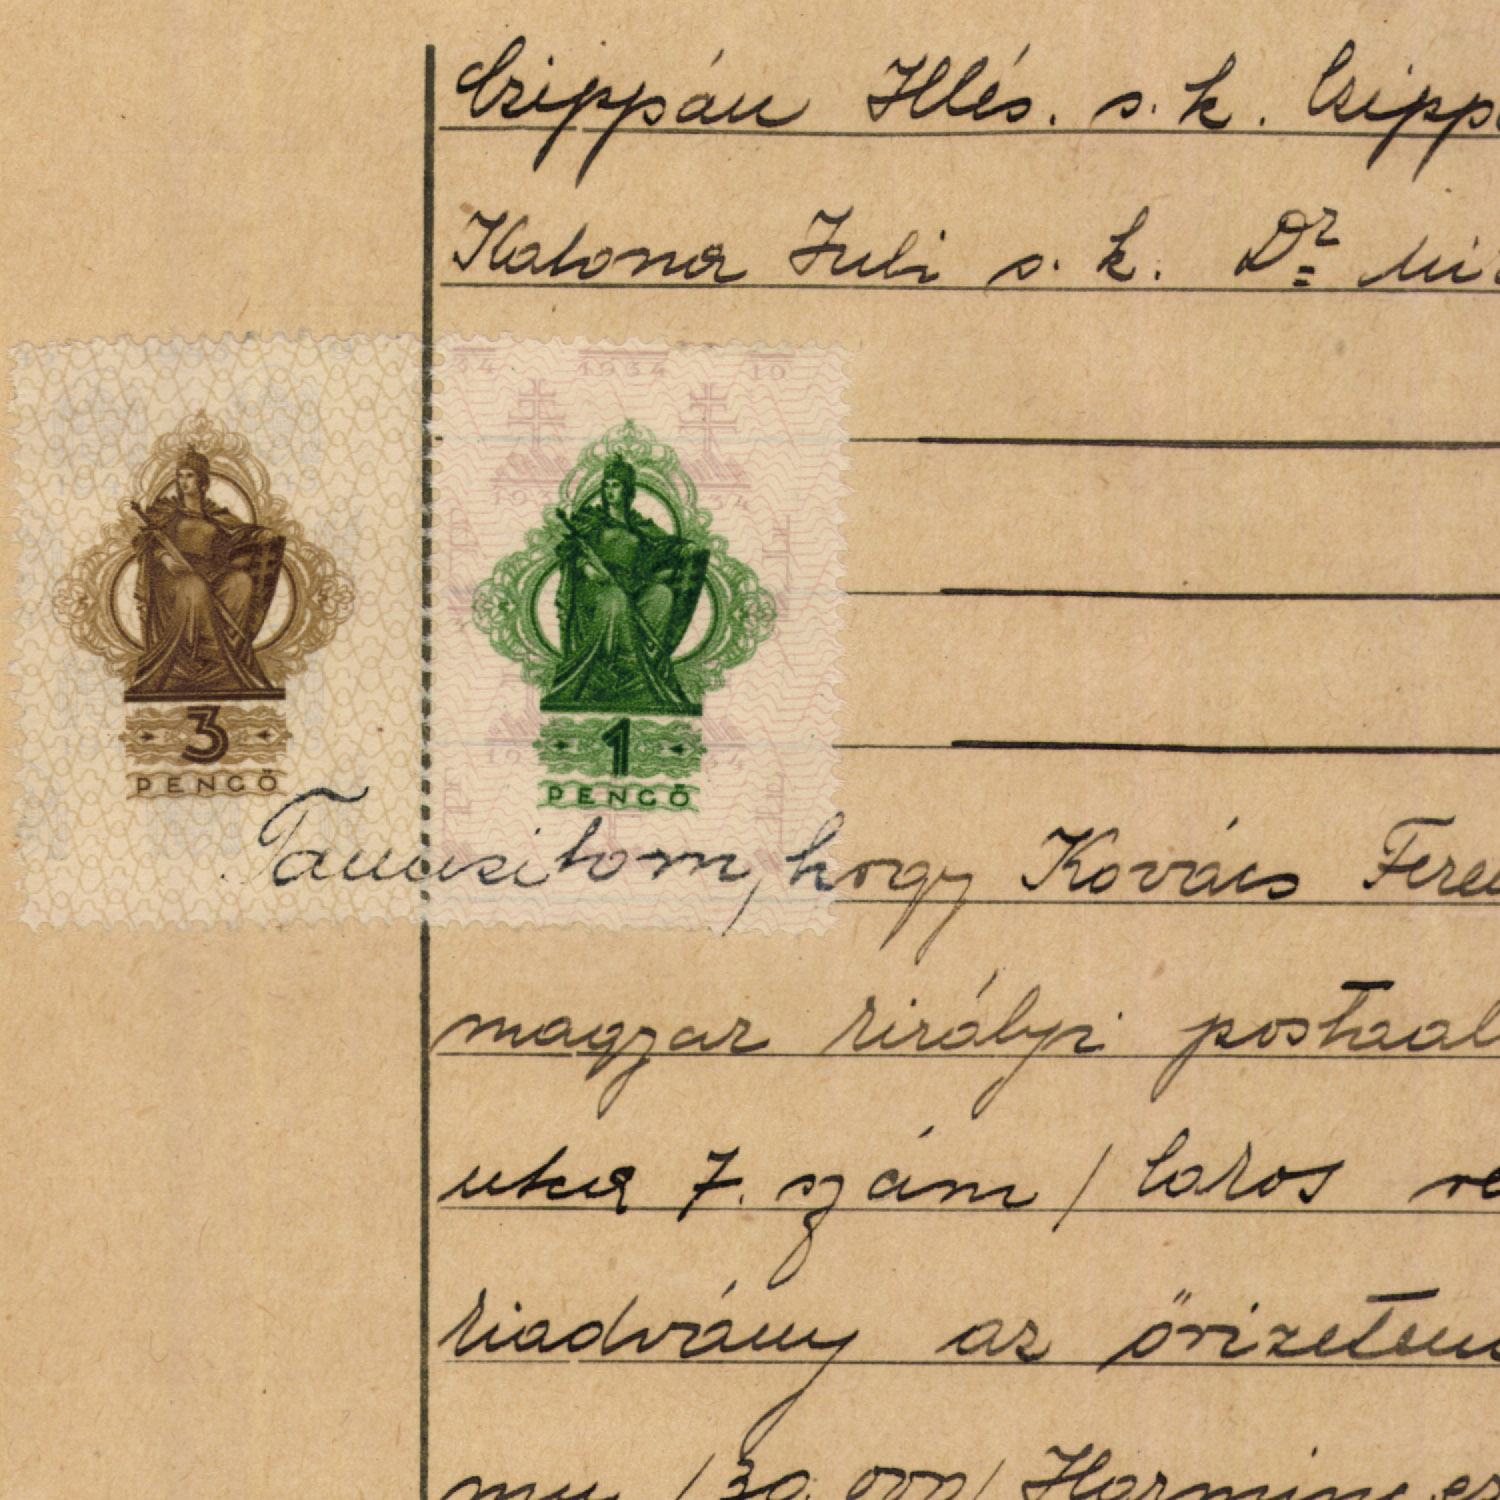 Czippán Illés. s. k. Czipp
Katona Juli s. k. Dr
34 1934 10
3 PENGŐ
1 PENGŐ
Tanusitom, hogy Kovács Feren
magyar királyi postaal
utca 7. szám / lakos
kiadvány az őrizetem
/30.000/ Harmincez